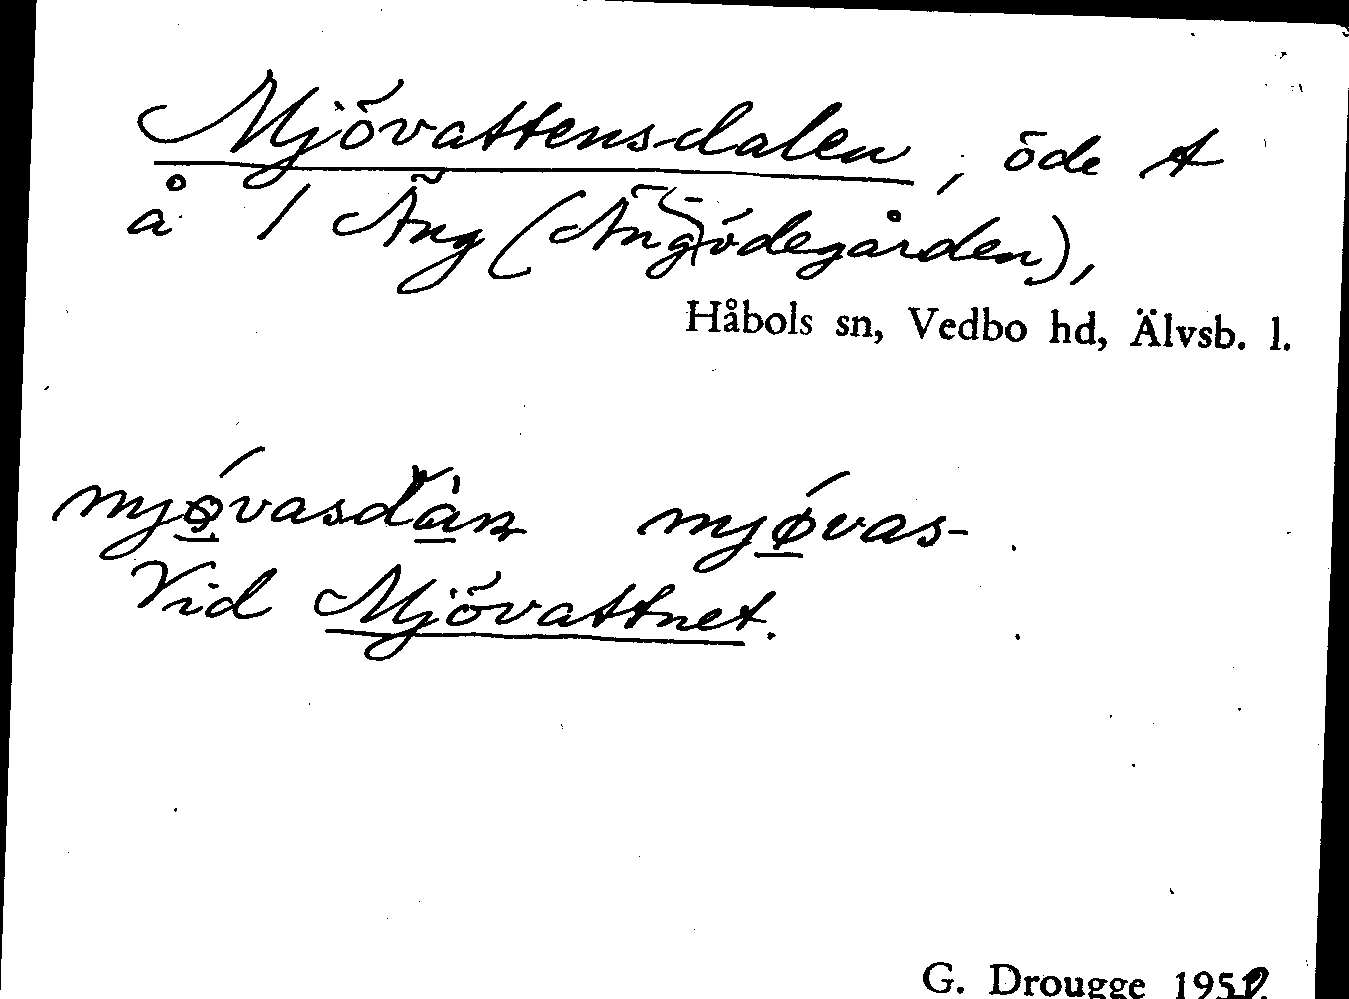 Mjövattensdalen, öde t
å 1 Äng (Ängödegården),
Håbols sn, Vedbo hd, Älvsb. l.
mjǿ̲vas- 
Vid Mjövattnet.
G. Drougge 195